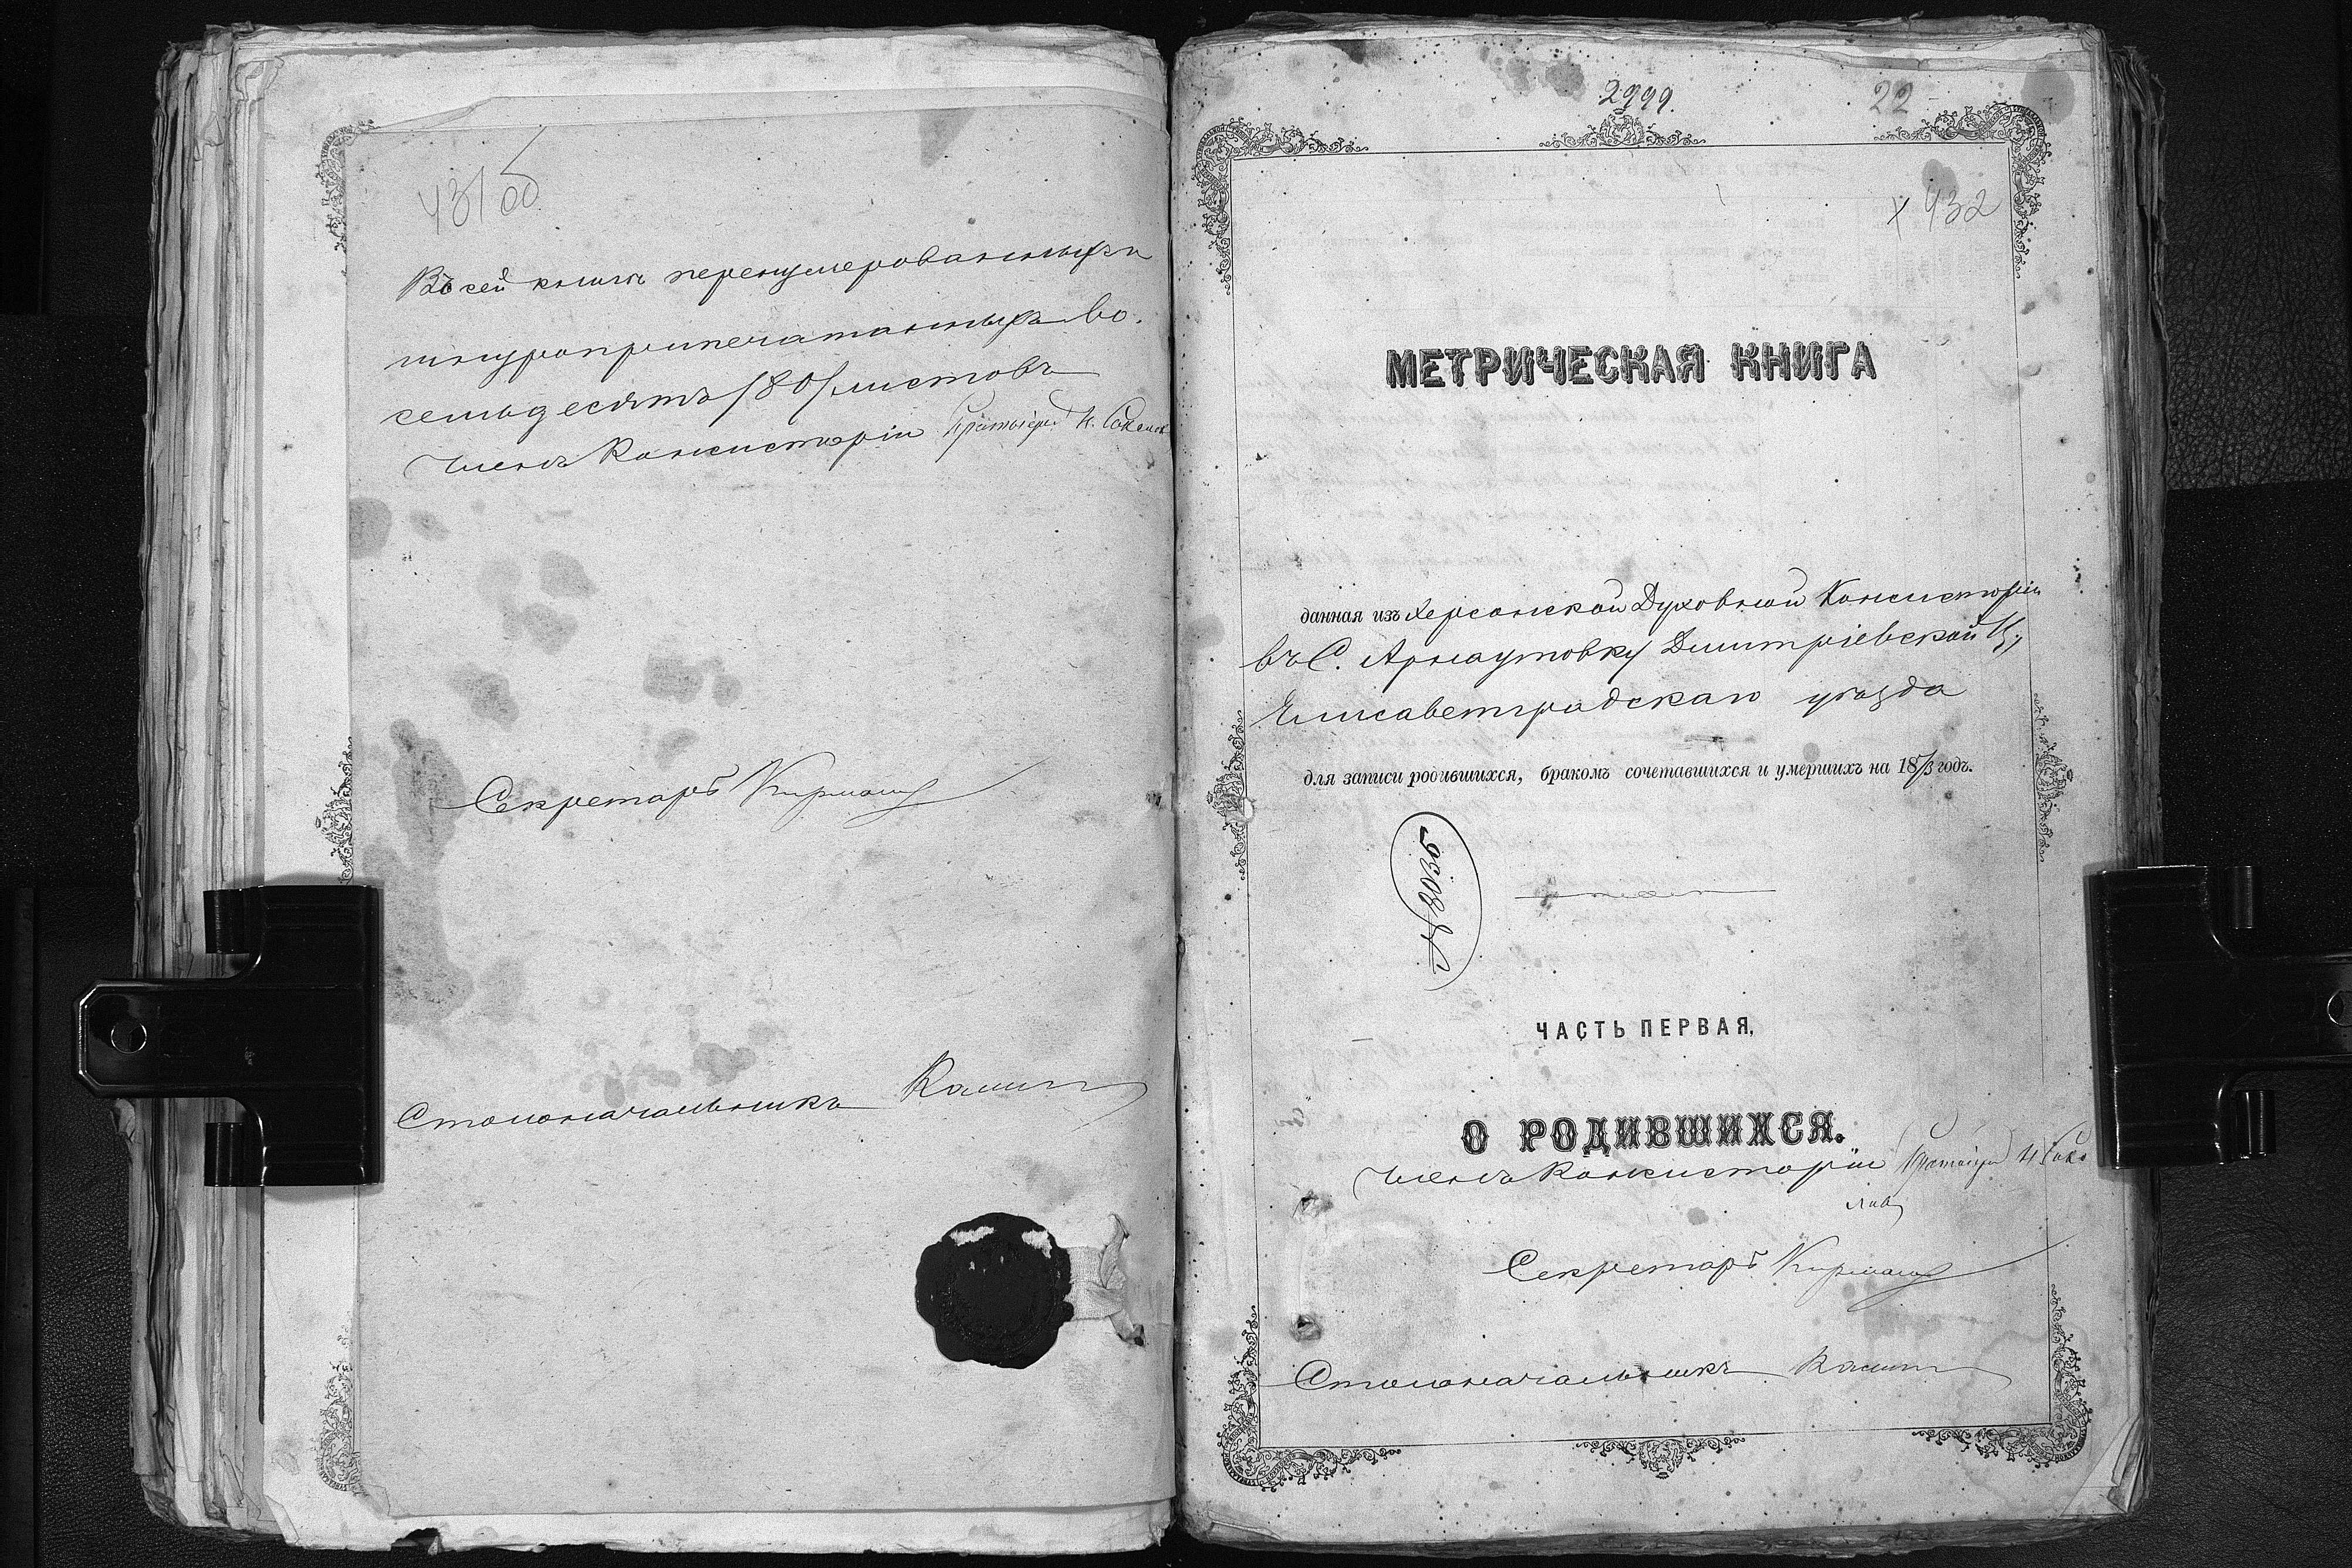 431 об
Въ сей книгѣ перенумерованныхъ и
шнуроприпечатанныхъ во-
семьдесятъ /80/ листовъ
Членъ Консисторіи Протоіерей
Секретарь
Столоначальникъ
2999.
22
432
МЕТРИЧЕСКАЯ КНИГА
данная изъ Херсонской Духовной Консисторіи
въ С. Арнаутовку Дмитріевской Ц.,
Елисаветградскаго уѣзда
для записи родившихся, бракомъ сочетавшихся и умершихъ на 18 годъ.
ЧАСТЬ ПЕРВАЯ,
О РОДИВШИХСЯ.
Членъ Консисторіи Протоіерей
Секретарь
Столоначальникъ